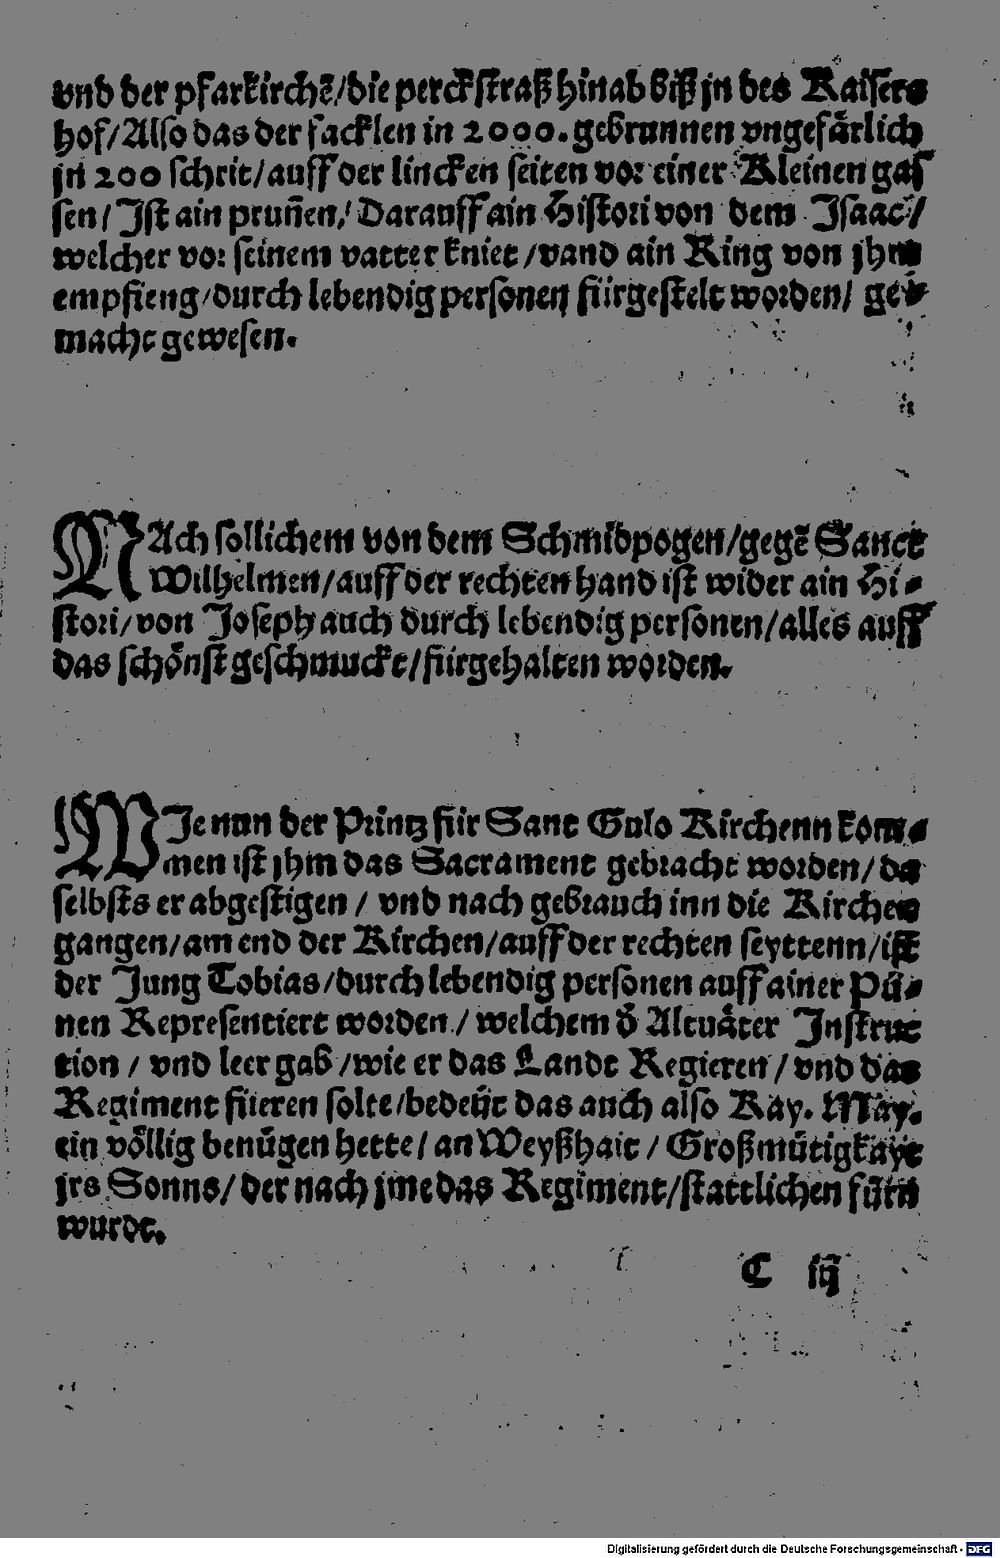 vnd der pfarkirchē/die perckſtraß hinab biß jn des Kaiſers
hof/Alſo das der facklen in 2000. gebrunnen vngefärlich
jn 200 ſchrit/auff der lincken ſeiten vor einer Kleinen gaſ
ſen/Iſt ain prun̄en/ Darauff ain Hiſtori von dem Iſaac/
welcher vor ſeinem vatter kniet/vand ain Ring von jhm
empfieng/durch lebendig perſonen fürgeſtelt worden/ ge-
macht geweſen.
NAch ſollichem von dem Schmidpogen/gegē Sanct
Wilhelmen/auff der rechten hand iſt wider ain Hi-
ſtori/von Joſeph auch durch lebendig perſonen/alles auff
das ſchönſt geſchmuckt/fürgehalten worden.
WIe nun der Printz für Sant Gulo Kirchenn kom-
men iſt jhm das Sacrament gebracht worden/da
ſelbſts er abgeſtigen / vnd nach gebrauch inn die Kirchen
gangen/am end der Kirchen/auff der rechten ſeyttenn/iſt
der Jung Tobias/durch lebendig perſonen auff ainer Pü-
nen Repreſentiert worden/ welchem ð Altuäter Inſtruc
tion / vnd leer gab/wie er das Landt Regieren/ vnd das
Regiment füeren ſolte/bedeüt das auch alſo Kay. May.
ein völlig benügen hette/ an Weyßhait/ Großmütigkayt
jrs Sonns/der nach jme das Regiment/ſtattlichen fürn
wurde.
C iij
Digitalisierung gefördert durch die Deutsche Forschungsgemeinschaft - DFG